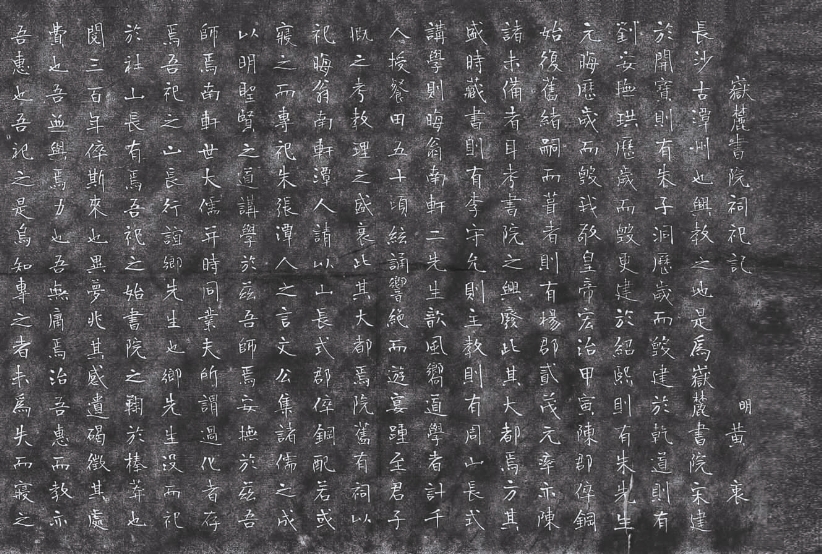 嶽麓書院祠祀記
明 黄衷
長沙古潭州也興教之地是爲嶽麓書院宋建
於開寳則有朱子洞歷歲而毀建於乾道則有
劉安撫珙歷歲而毀更建於紹熙則有朱先生
元晦歷歲而毀我敬皇帝宏治甲寅陳郡倅鋼
始復舊緒嗣而葺者則有楊郡貳茂元率亦陳
諸未備者耳考書院之興廢此其大都焉方其
盛時藏書則有李守允則主教則有周山長式
講學則晦翁南軒二先生歆風嚮道學者計千
人授餐田五十頃絃誦響絶而遊宴踵至君子
慨之考教理之盛衰此其大都焉院舊有祠以
祀晦翁南軒潭人請以山長式郡倅鋼配君或
寢之而專祀朱張潭人之言文公集諸儒之成
以明聖賢之道講學於兹吾師焉安撫於兹吾
師焉南軒世大儒并時同業夫所謂過化者存
焉吾祀之山長行誼鄉先生也鄉先生没而祀
於社山長有焉吾祀之始書院之鞠於榛莽也
閱三百年倅斯來也異夢兆其感遺碣徵其處
費也吾並與焉力也吾無庸焉治吾惠而教亦
吾惠也吾祀之是烏知專之者未爲失而寢之